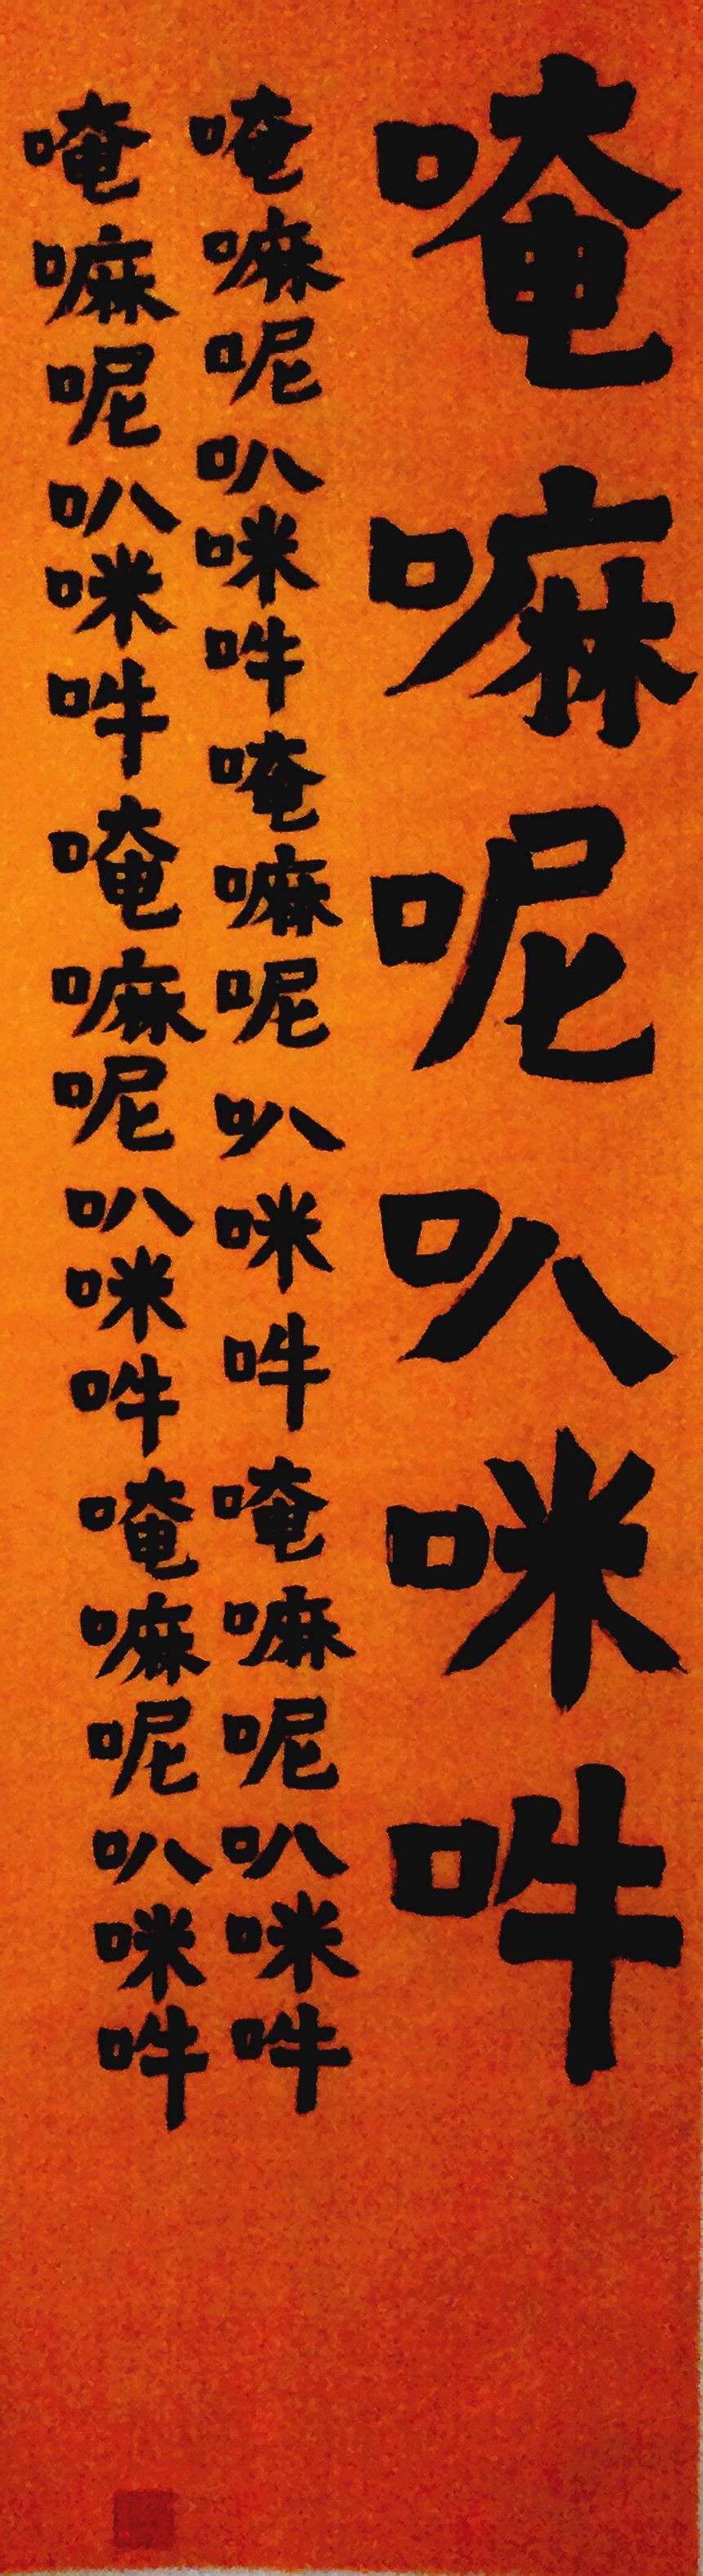 唵嘛呢叭咪吽
唵嘛呢叭咪吽唵嘛呢叭咪吽唵嘛呢叭咪吽
唵嘛呢叭咪吽唵嘛呢叭咪吽唵嘛呢叭咪吽